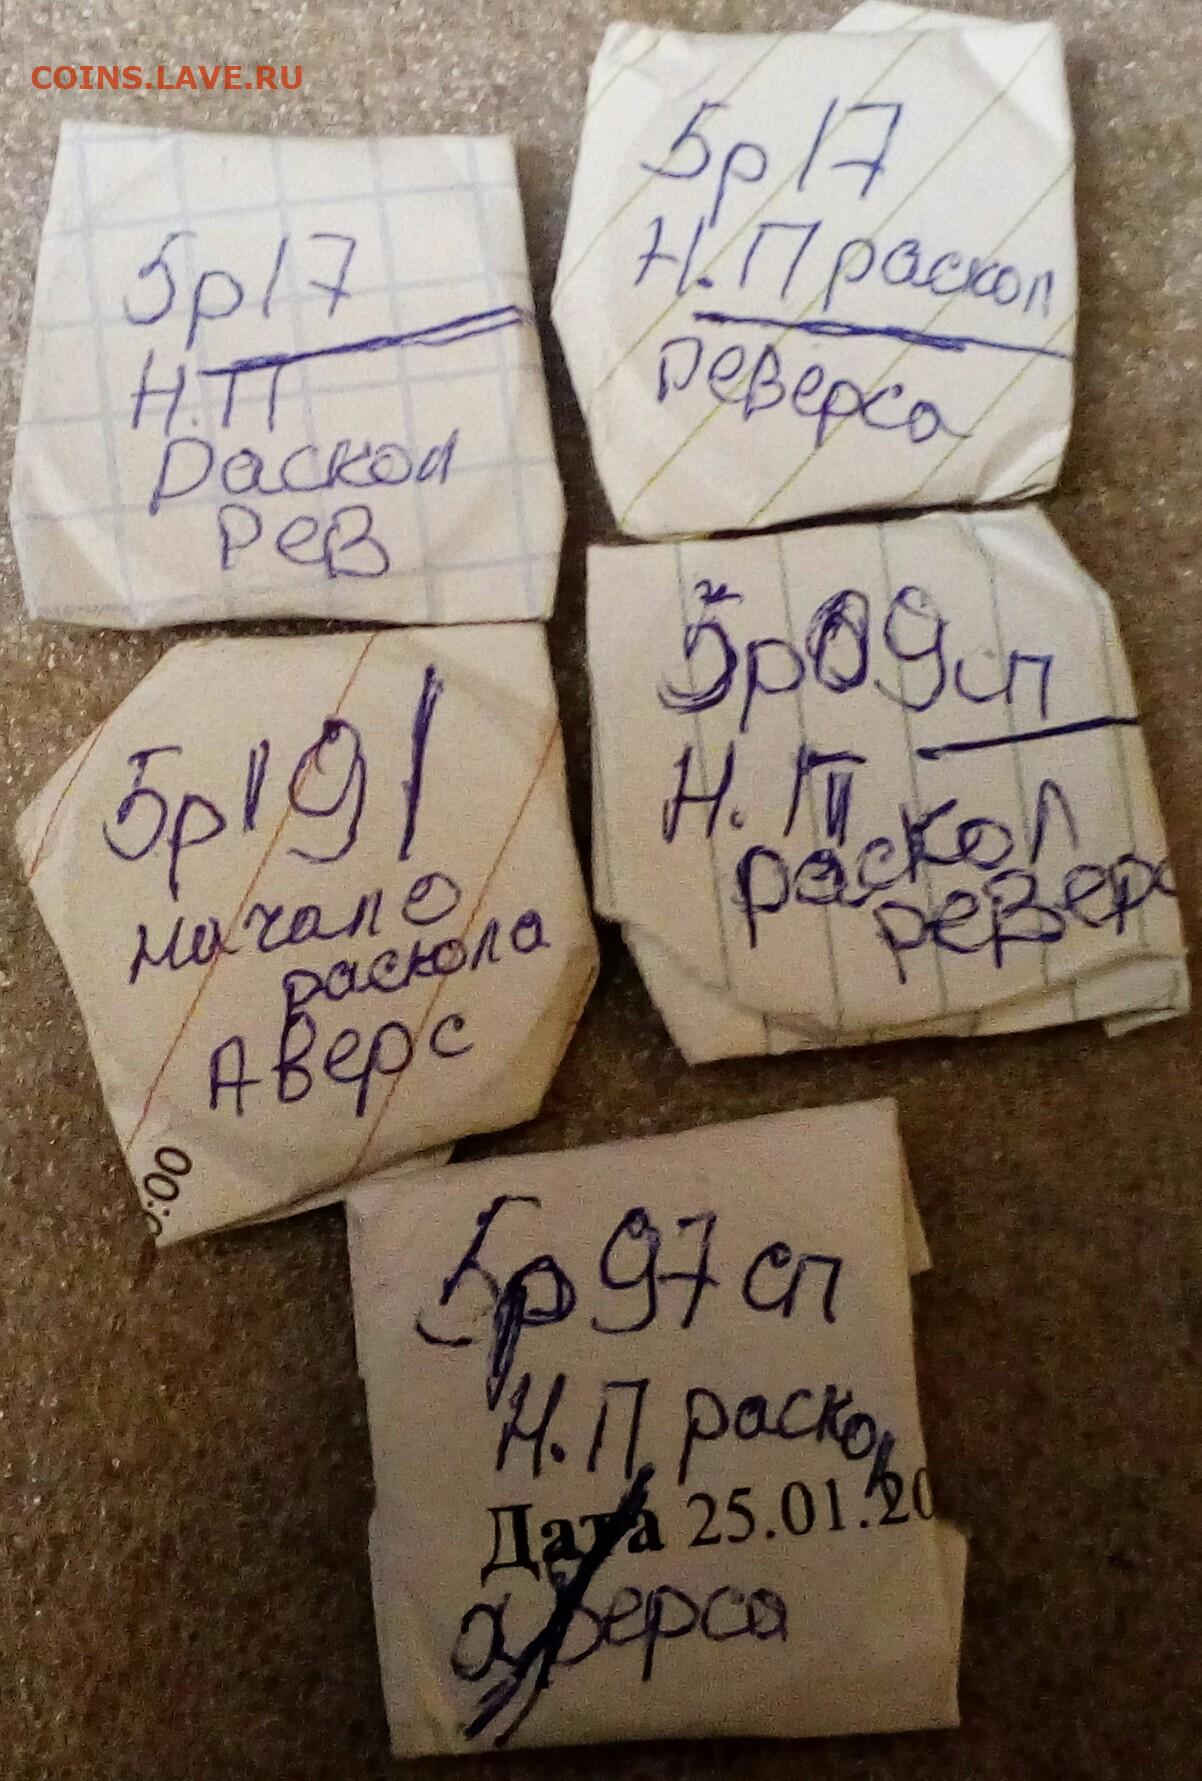 COINS.LAVE.RU
5р17
Н.П
Раскол
Рев
5р17
Н.П раскол
реверса
5р191
начало
раскола
Аверс
:00
5р09сп
Н.П
раскол
реверс
5р97сп
Н.П раскол
Дата 25.01.20
аверса